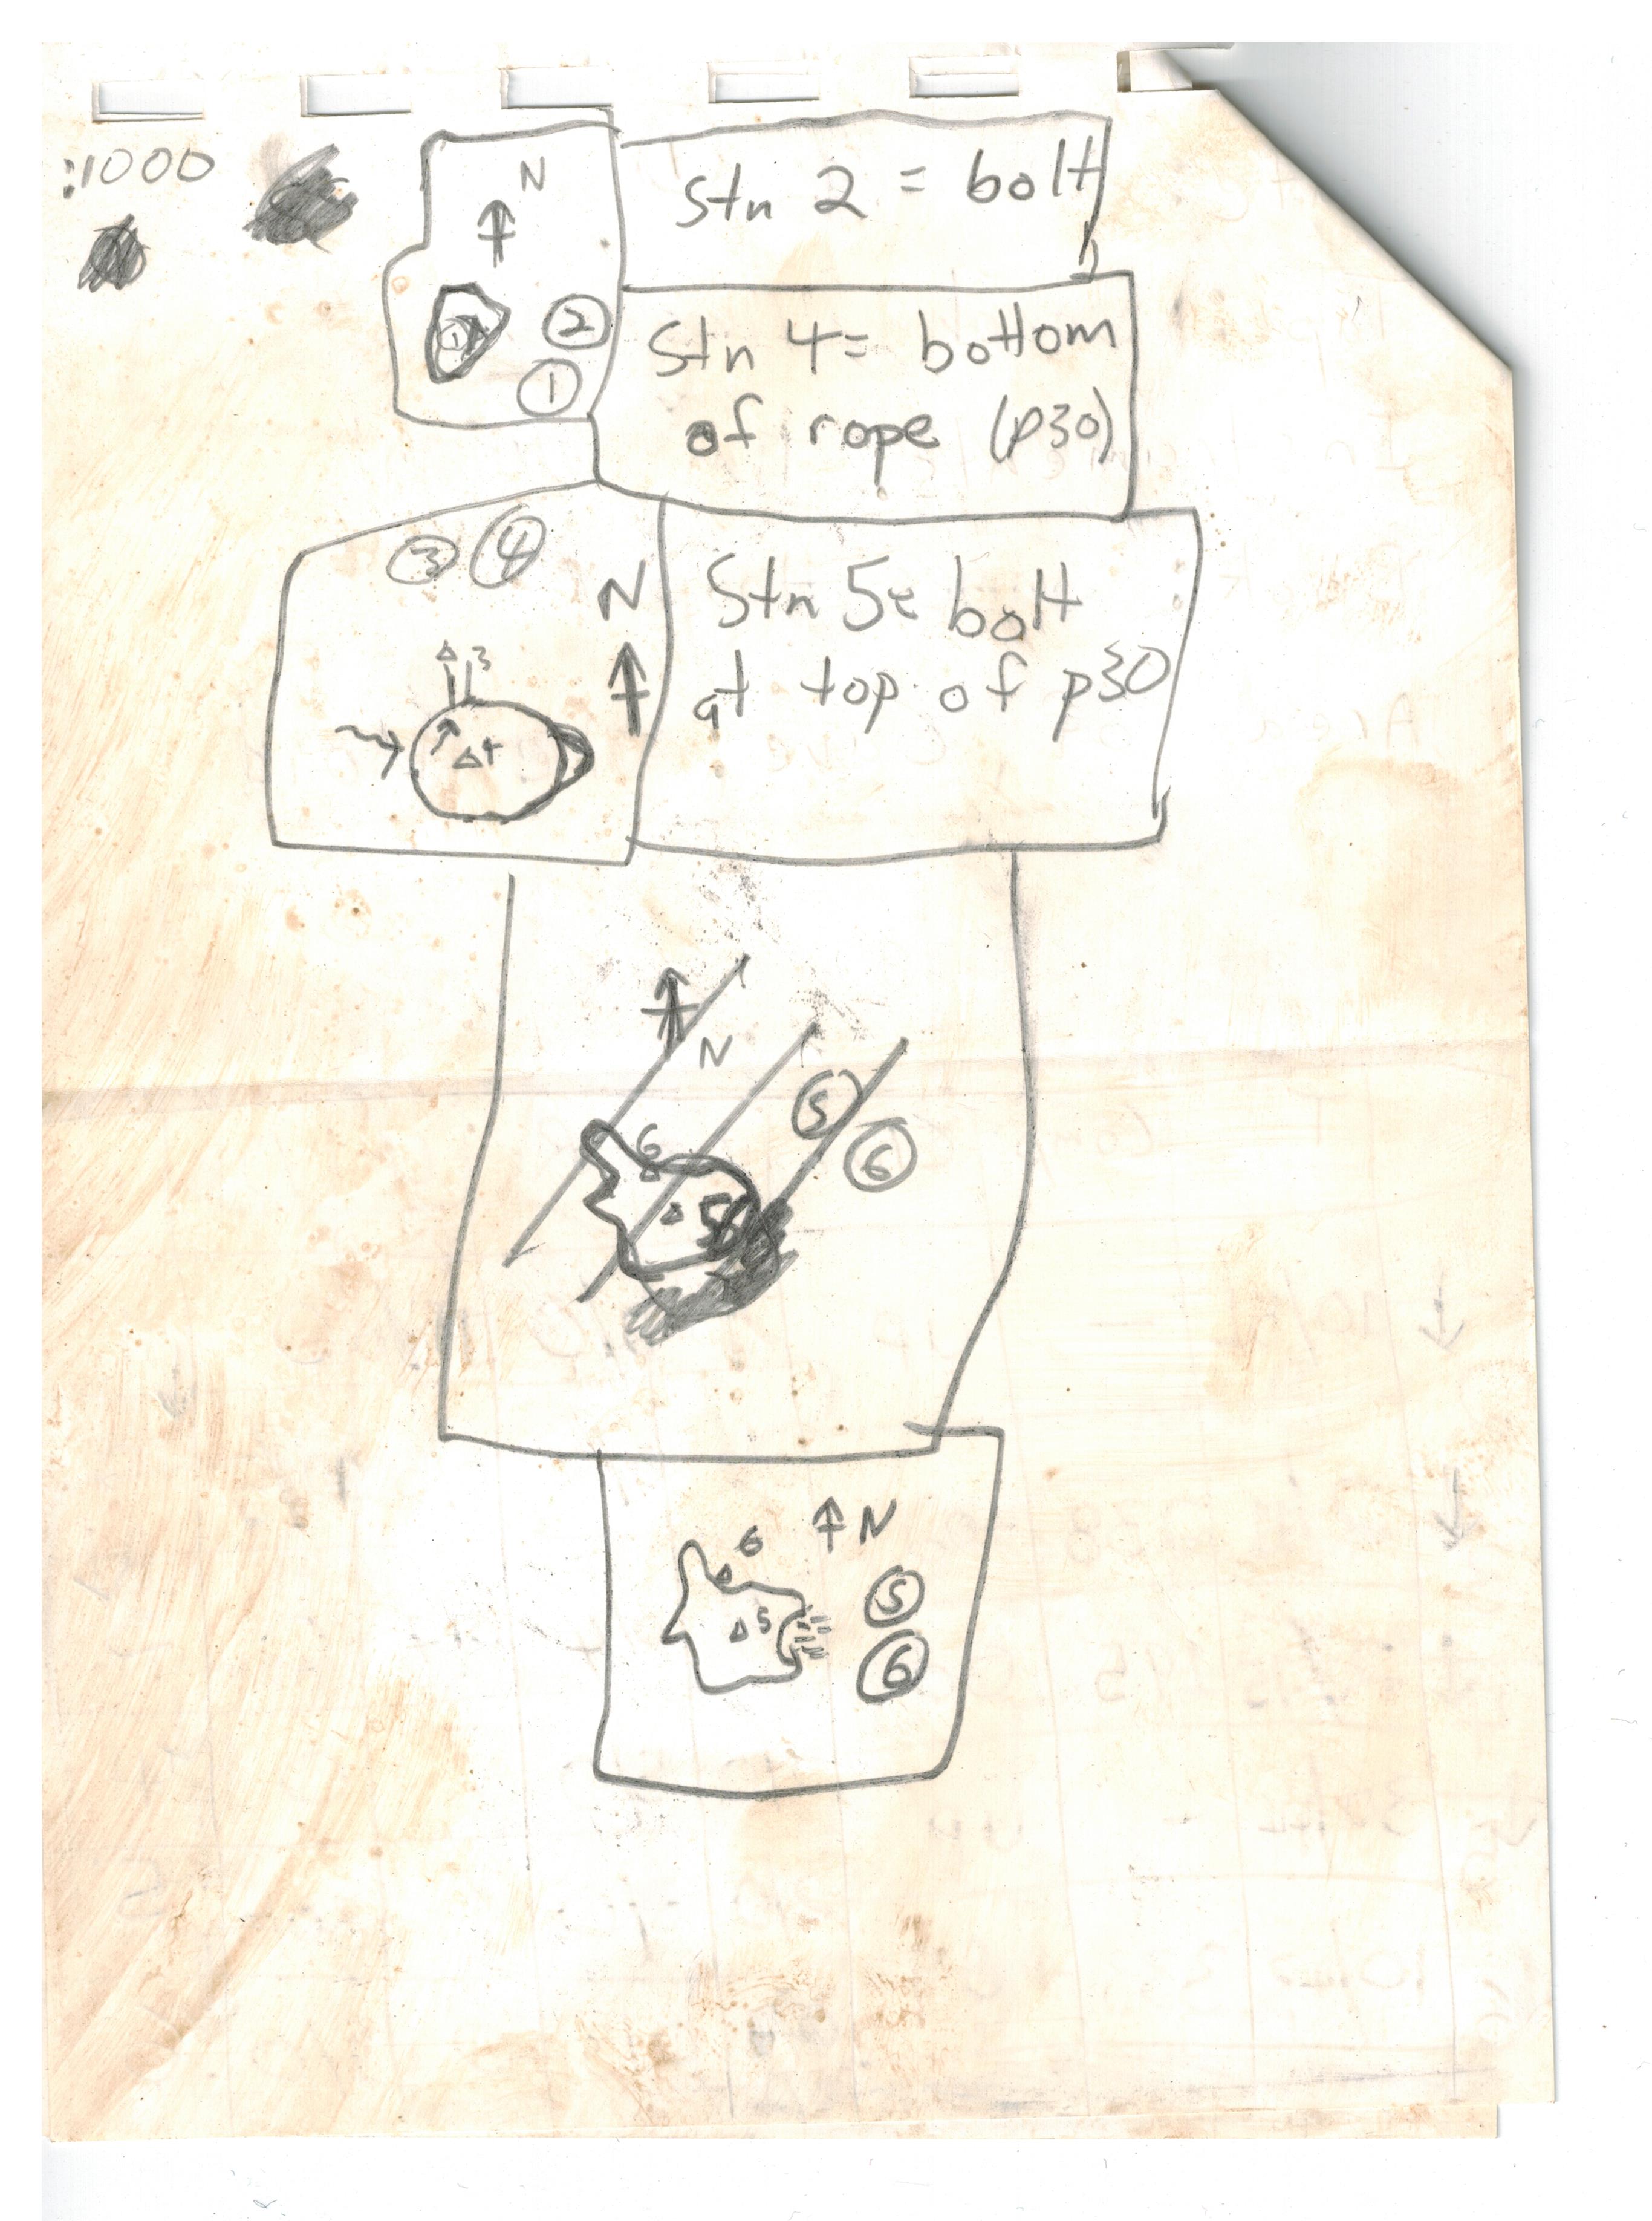 :1000
N
2
1
stn 2 = bolt
Stn 4 = bottom
of rope (p30)
3 4
N
3
4
Stn 5= bolt
at top of p30
N
5
6
6
5
N
6
5
5
6